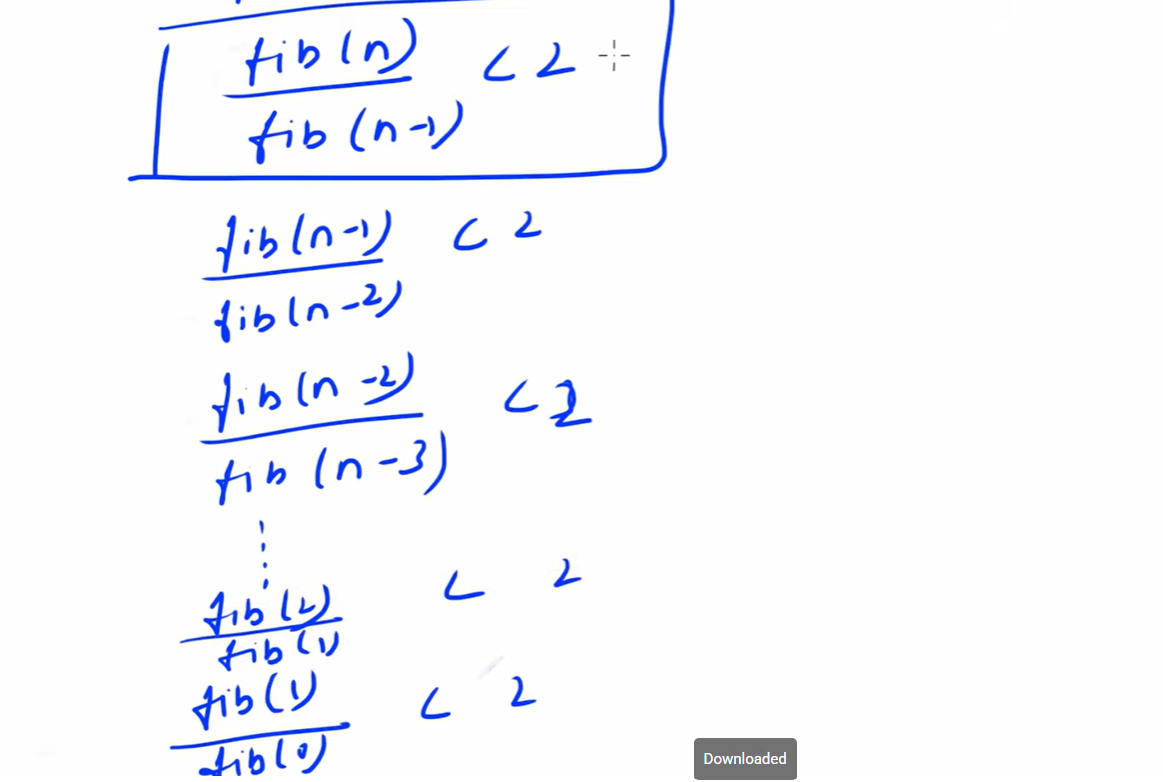 fib(n)
< 2
fib(n-1)
fib(n-1) < 2
fib(n-2)
fib(n-2) < 2
fib(n-3)
fib(2) < 2
fib(1)
fib(1) < 2
fib(0)
Downloaded